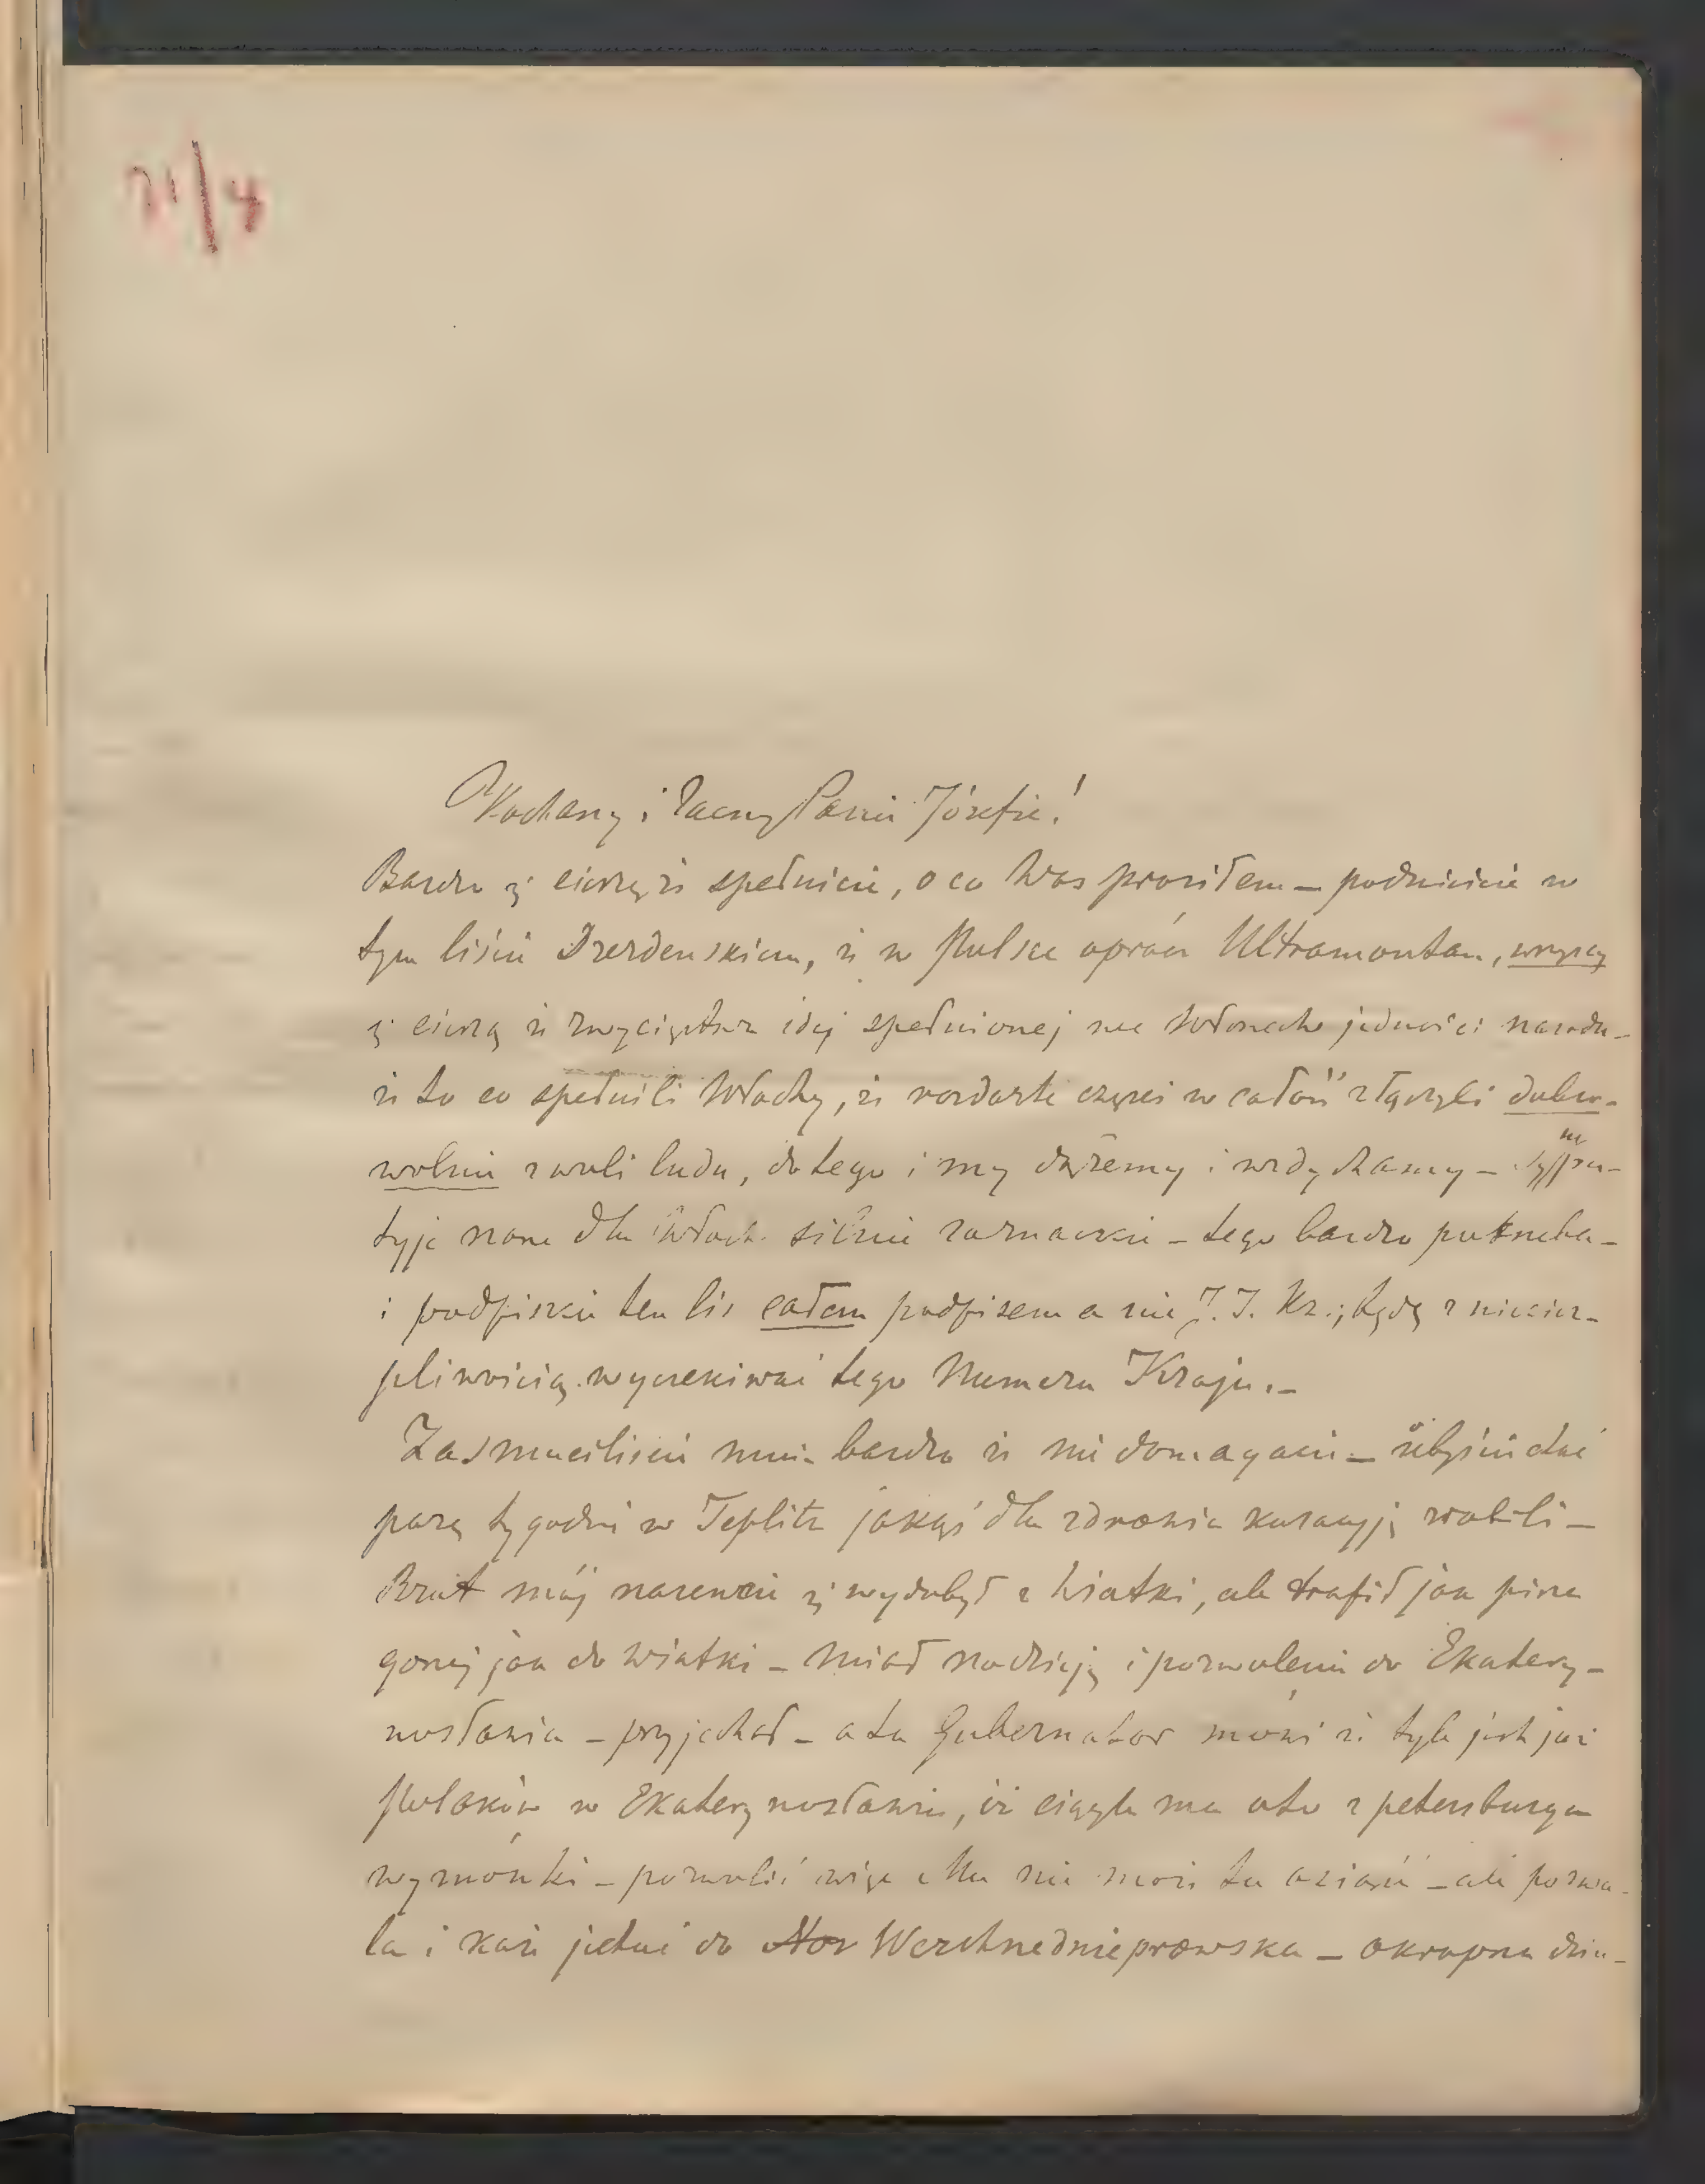 Kochany i Zacny Panie Józefie!
Bardzo się cieszę że spełnicie, o co Was prosiłem – podnieście w
tym liście Drezdeńskim, że w Polsce oprócz Ultramontan, wszyscy
się cieszą ze zwycięztwa idei spełnionej we Włoszech jedności narodu –
że to co spełnili Włochy, że rozdarte części w całość złączyli dobro-
wolnie z woli ludu, do tego i my dążemy i wzdychamy –
tyje nasze dla Włoch silnie zaznaczcie – tego bardzo potrzeba –
i podpiszcie ten lis całem podpisem a nie J. I. Kr.; będę z niecier-
pliwością wyczekiwać tego Numeru Kraju. –
Zasmuciliście mnie bardzo że nie domagacie – żebyście choć
parę tygodni w Teplitz jakąś dla zdrowia kuracyję zrobili –
Brat mój nareszcie się wydobył z Wiatki, ale trafił jak pisze
gorzej jak do Wiatki – Miał nadzieję i pozwolenie do Ekatery-
nosławia – przyjechał – a tu Gubernator mówi że tyle jest już
Polaków w Ekaterynosławiu, iż ciągle ma oto z petersburga
wymówki – pozwolić więc Mu nie może tu osiąść – ale pozwa-
la i każe jechać do Nov Werchnednieprowska – okropna dziu-